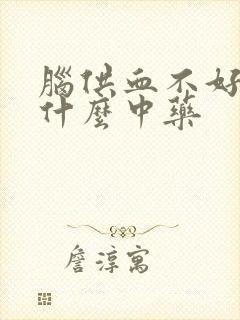 腦供血不好
什麼中藥
詹淳寓